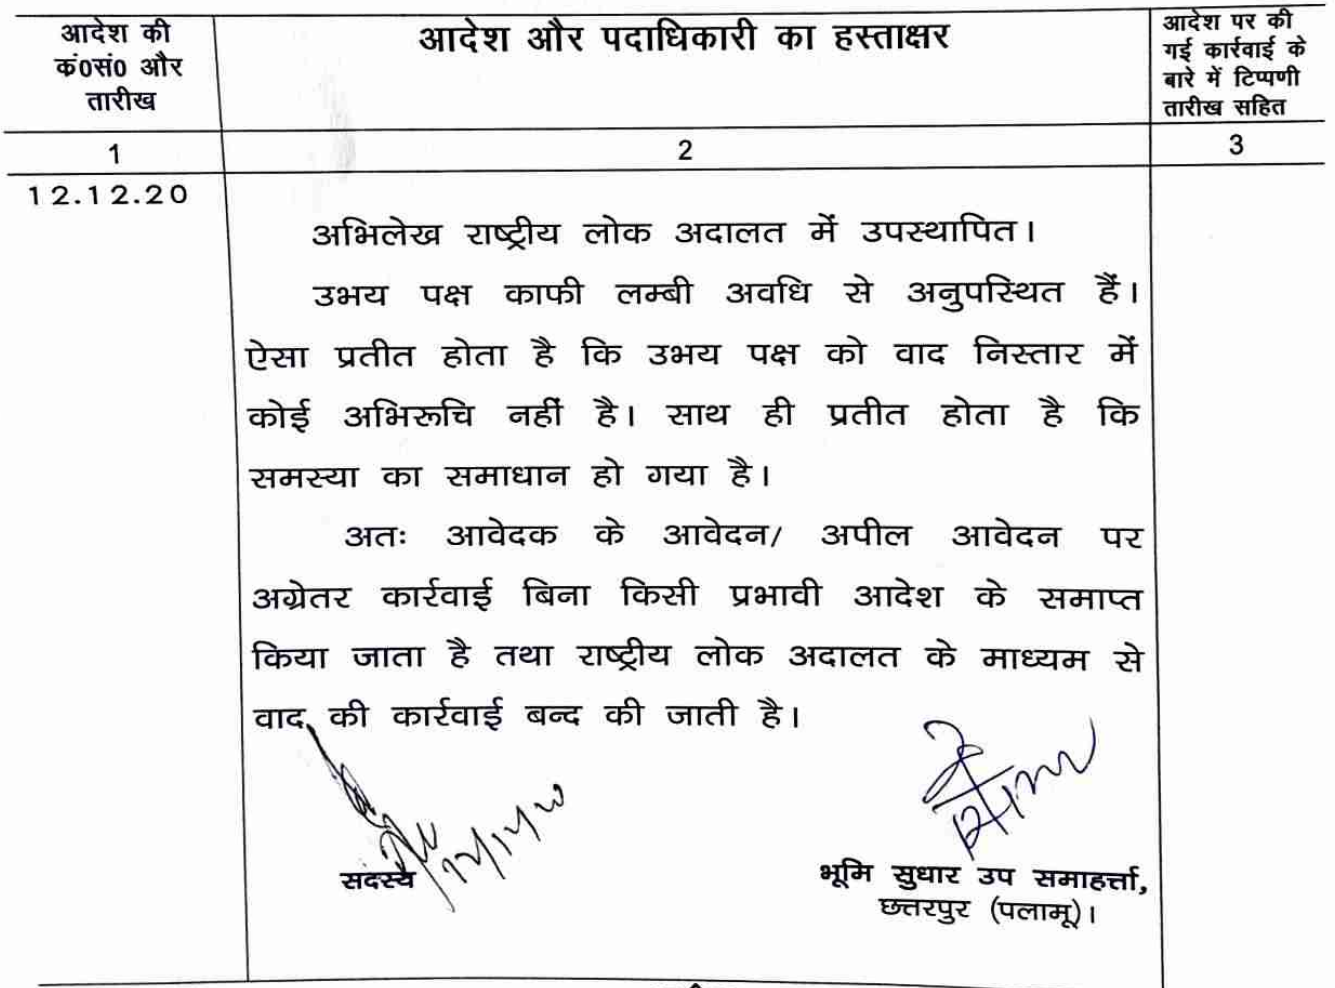 आदेश की
कं0सं0 और
तारीख
आदेश और पदाधिकारी का हस्ताक्षर
आदेश पर की
गई कार्रवाई के
बारे में टिप्पणी
तारीख सहित
1
2
3
12.12.20
अभिलेख राष्ट्रीय लोक अदालत में उपस्थापित।
उभय पक्ष काफी लम्बी अवधि से अनुपस्थित हैं।
ऐसा प्रतीत होता है कि उभय पक्ष को वाद निस्तार में
कोई अभिरूचि नहीं है। साथ ही प्रतीत होता है कि
समस्या का समाधान हो गया है।
अतः आवेदक के आवेदन/ अपील आवेदन पर
अग्रेतर कार्रवाई बिना किसी प्रभावी आदेश के समाप्त
किया जाता है तथा राष्ट्रीय लोक अदालत के माध्यम से
वाद की कार्रवाई बन्द की जाती है।
12/12/20
सदस्य
भूमि सुधार उप समाहर्त्ता,
छत्तरपुर (पलामू)।